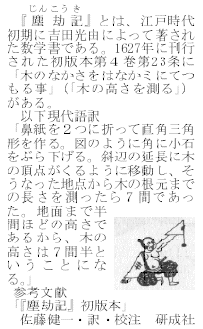 じんこうき
『塵劫記』とは、江戸時代
初期に吉田光由によって著され
た数学書である。1627年に刊行
された初版本第4巻第23条に
「木のなかさをはなかミにてつ
もる事」(「木の高さを測る」)
がある。
以下現代語訳
「鼻紙を2つに折って直角三角
形を作る。図のように角に小石
をぶら下げる。斜辺の延長に木
の頂点がくるように移動し、そ
うなった地点から木の根元まで
の長さを測ったら7間であっ
た。地面まで半
間ほどの高さで
あるから、木の
高さは7間半と
いうことにな
る。」
参考文献
『塵劫記』初版本」
佐藤健一・訳・校注 研成社